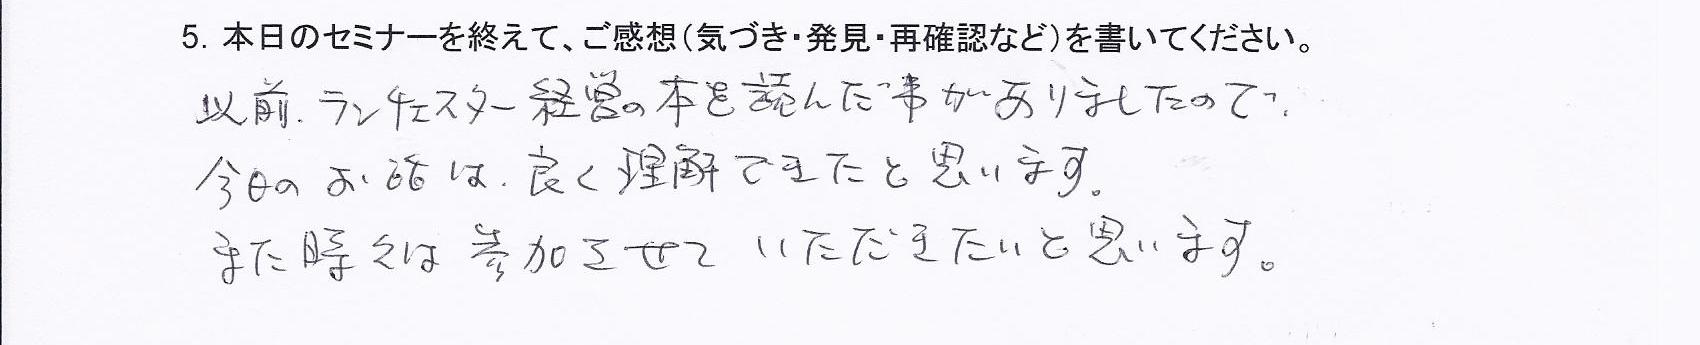 5. 本日のセミナーを終えて、ご感想（気づき・発見・再確認など）を書いてください。
以前、ランチェスター経営の本を読んだ事がありましたので、
今日のお話は、良く理解できたと思います。
また時々は参加させていただきたいと思います。